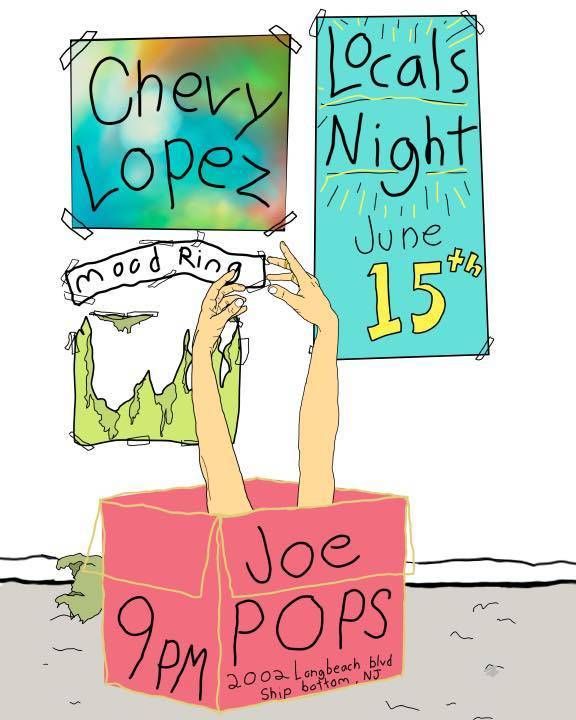 Chevy
Lopez
Locals
Night
June
15th
mood Ring
Joe
POPS
9PM
2002 Longbeach blvd
Ship bottom, NJ